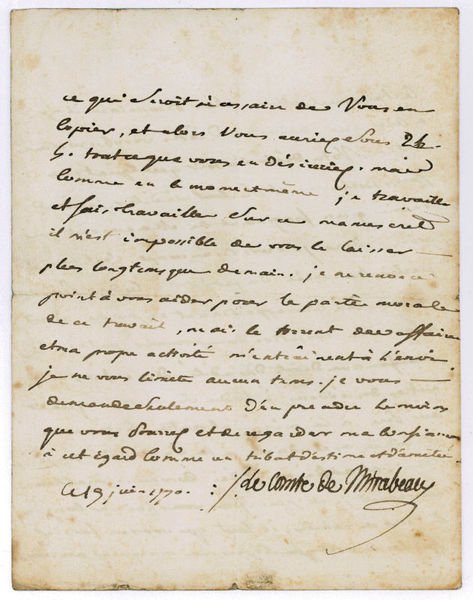 ce qui seroit nécessaire de Vous en
copier, et alors Vous auriez sous 24
h. tout ce que vous en désiriez. mais
comme en le moment même je travaille
et fais travailler sur ce manuscrit
il m'est impossible de vous le laisser
plus longtems que demain. je ne renonce
point à vous aider pour la partie morale
de ce travail, mais le torrent des affaires
et ma propre activité m'entraînent à l'envi
je ne vous limite aucun tems. je vous
demande seulement d'en prendre le moins
que vous pourrez et de regarder ma confiance
à cet égard comme un tribut d'estime et d'amitié
Ce 19 juin 1790. le Comte de Mirabeau